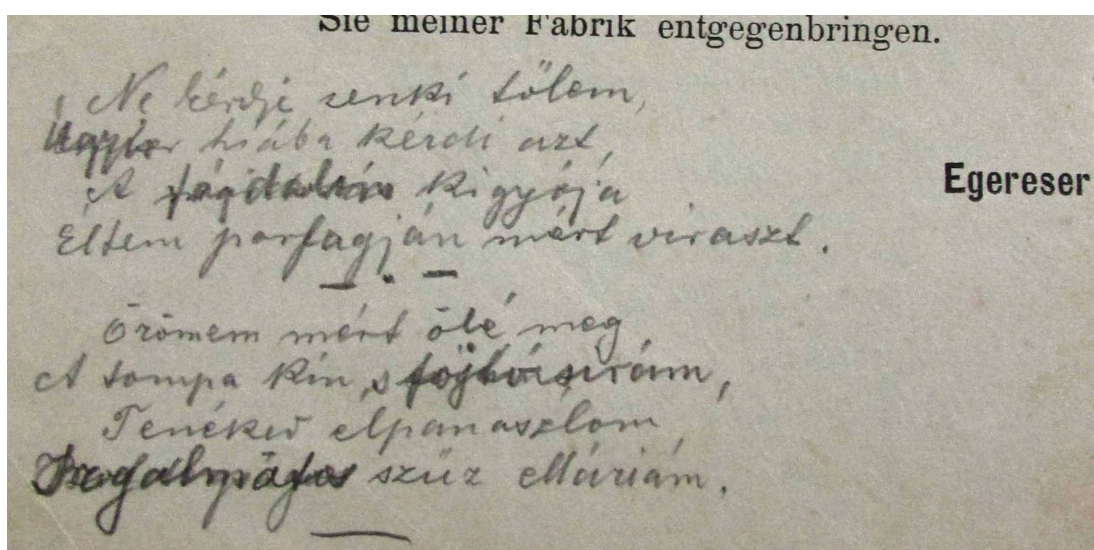 Sie meiner Fabrik entgegenbringen.
Ne kérdje senki tőlem,
hiába kérdi azt,
Egereser
A fájdalom kigyója
Éltem porfagján mért viraszt.
Örömem mért ölé meg
A tompa kin, s
Tenéked elpanaszlom
szüz Máriám.